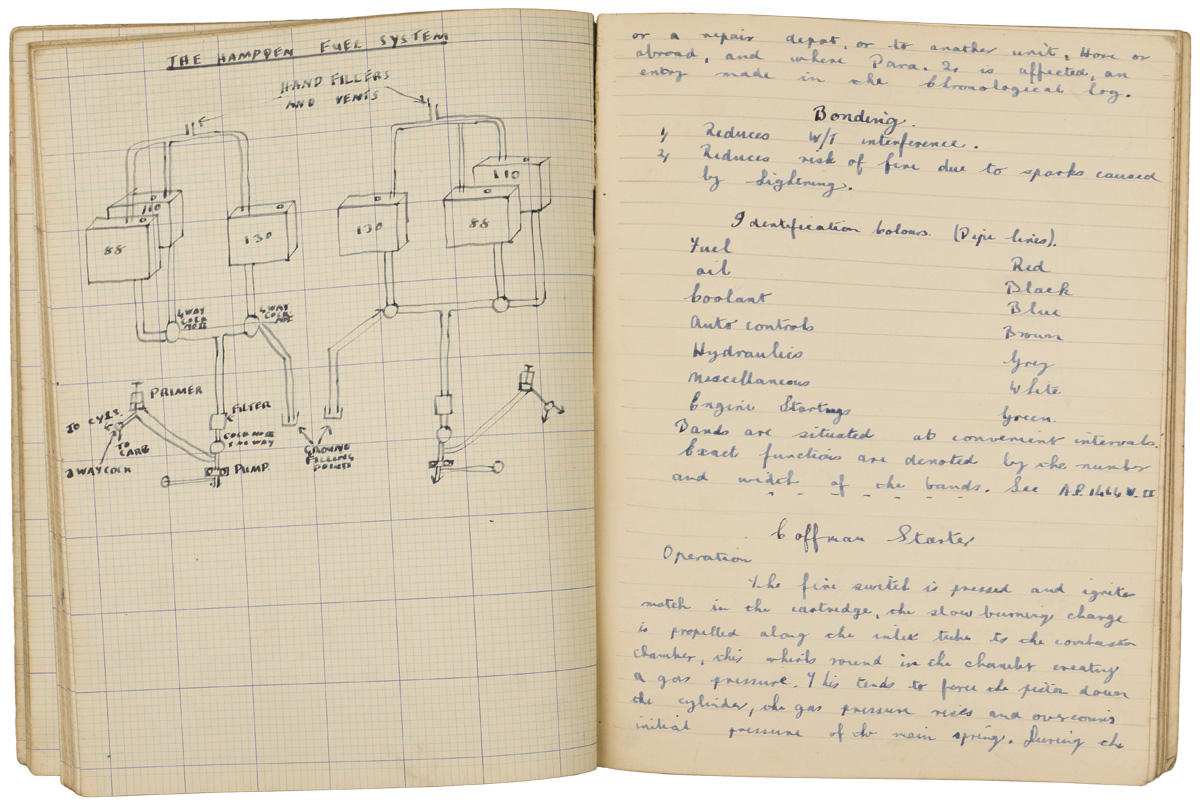 THE HAMPDEN FUEL SYSTEM
HAND FILLERS
AND VENTS
110
88
130
130
110
88
4 WAY
COCK
4 WAY
COCK
PRIMER
TO CYLS.
TO
CARB
3 WAY COCK
FILTER
COCK
PUMP
GROUND
FILLING
POINTS
or a repair depot, or to another unit, Home or
abroad, and where Para. 2, is affected, an
entry made in the Chronological log.
Bonding.
1, Reduces W/T interference.
2, Reduces risk of fire due to sparks caused
by Lightning.
Identification Colours. (Pipe lines).
Fuel Red
oil Black
Coolant Blue
Auto controls Brown
Hydraulics Grey
Miscellaneous White
Engine Starting Green.
Bands are situated at convenient intervals.
Exact functions are denoted by the number
and width of the bands. See A.P. 1464 V. II
Coffman Starter
Operation
The fire switch is pressed and ignites
match in the cartridge, the slow burning charge
is propelled along the inlet tube to the combustion
chamber, this whirls round in the chamber creating
a gas pressure. This tends to force the piston down
the cylinder, the gas pressure rises and overcomes
initial pressure of the main spring. During the